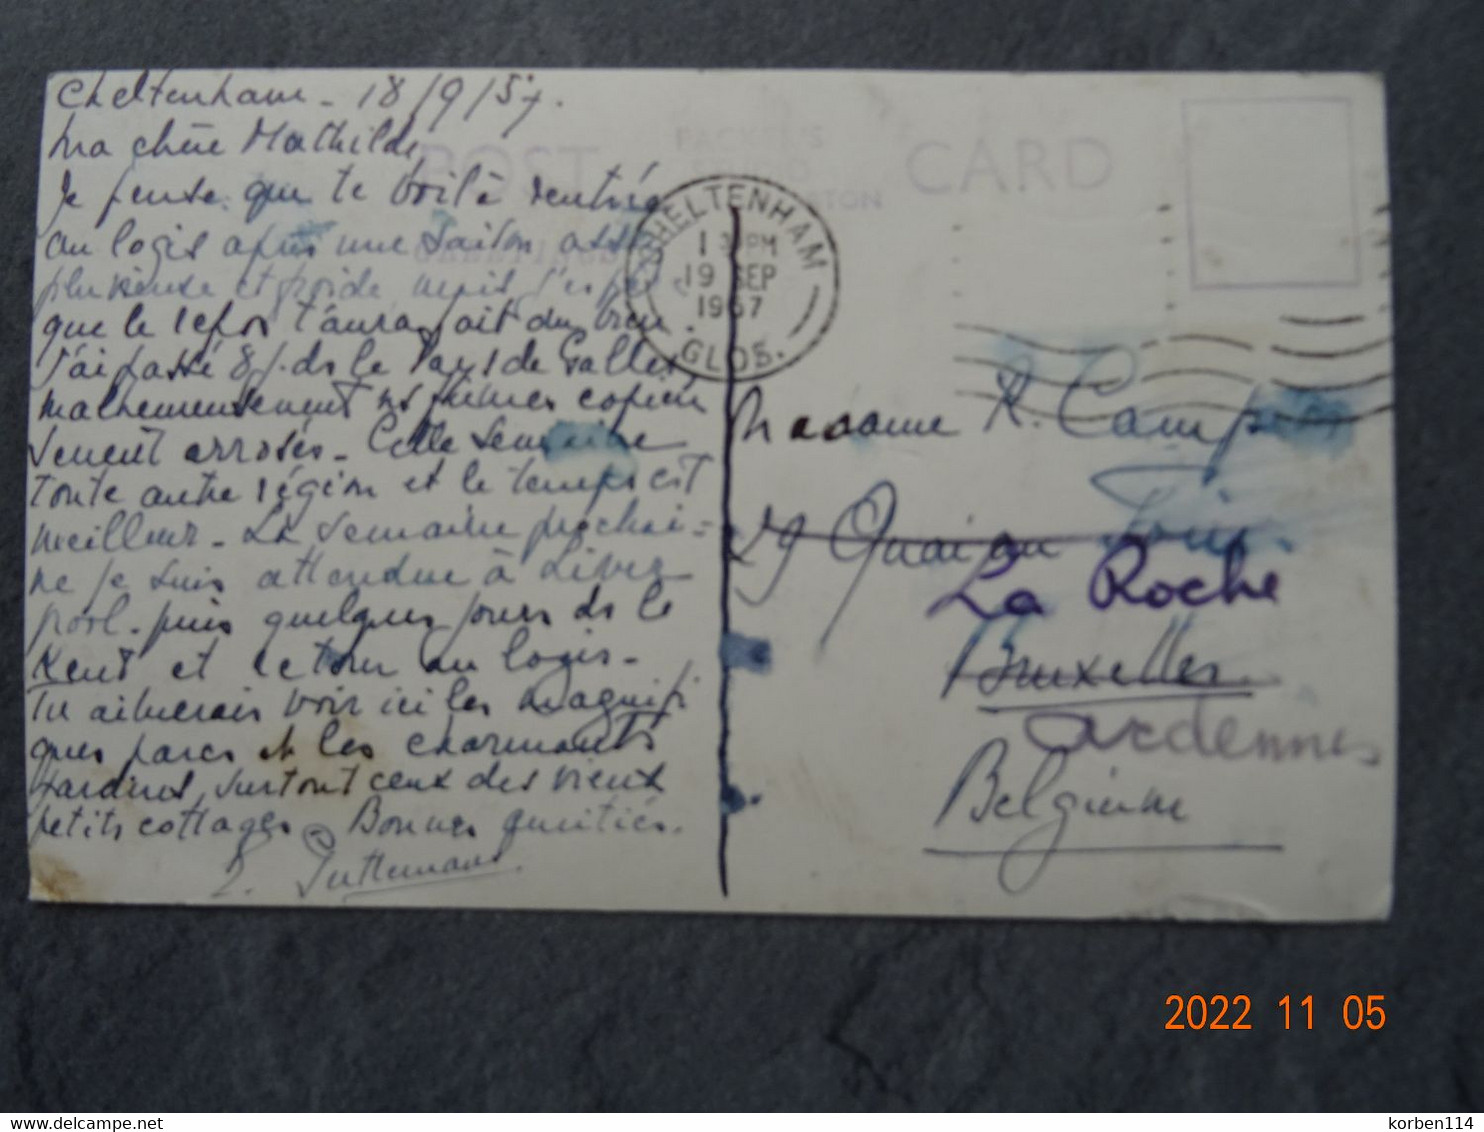 Cheltenham - 18/9/57.
Ma chère Mathilde,
Je pense que te voilà rentrée
au logis après une saison assez
pluvieuse et froide mais j'espère
que le repos t'aura fait du bien.
J'ai passé 8 j. ds le Pays de Galles
malheureusement ns fûmes copieu
sement arrosés - Cette semaine
toute autre région et le temps est
meilleur - La semaine prochai-
ne je suis attendue à Liver
pool - puis quelques jours ds le
Kent et retour au logis -
Tu aimerais voir ici les magnifi
ques parcs et les charmants
jardins, surtout ceux des vieux
petits cottages. Bonnes amitiés.
POST CARD
CHELTENHAM
PM
19 SEP
1957
GLOS.
Madame R.
29 Quai au Foin
La Roche
Bruxelles
Ardennes
Belgienne
2022 11 05
korben114